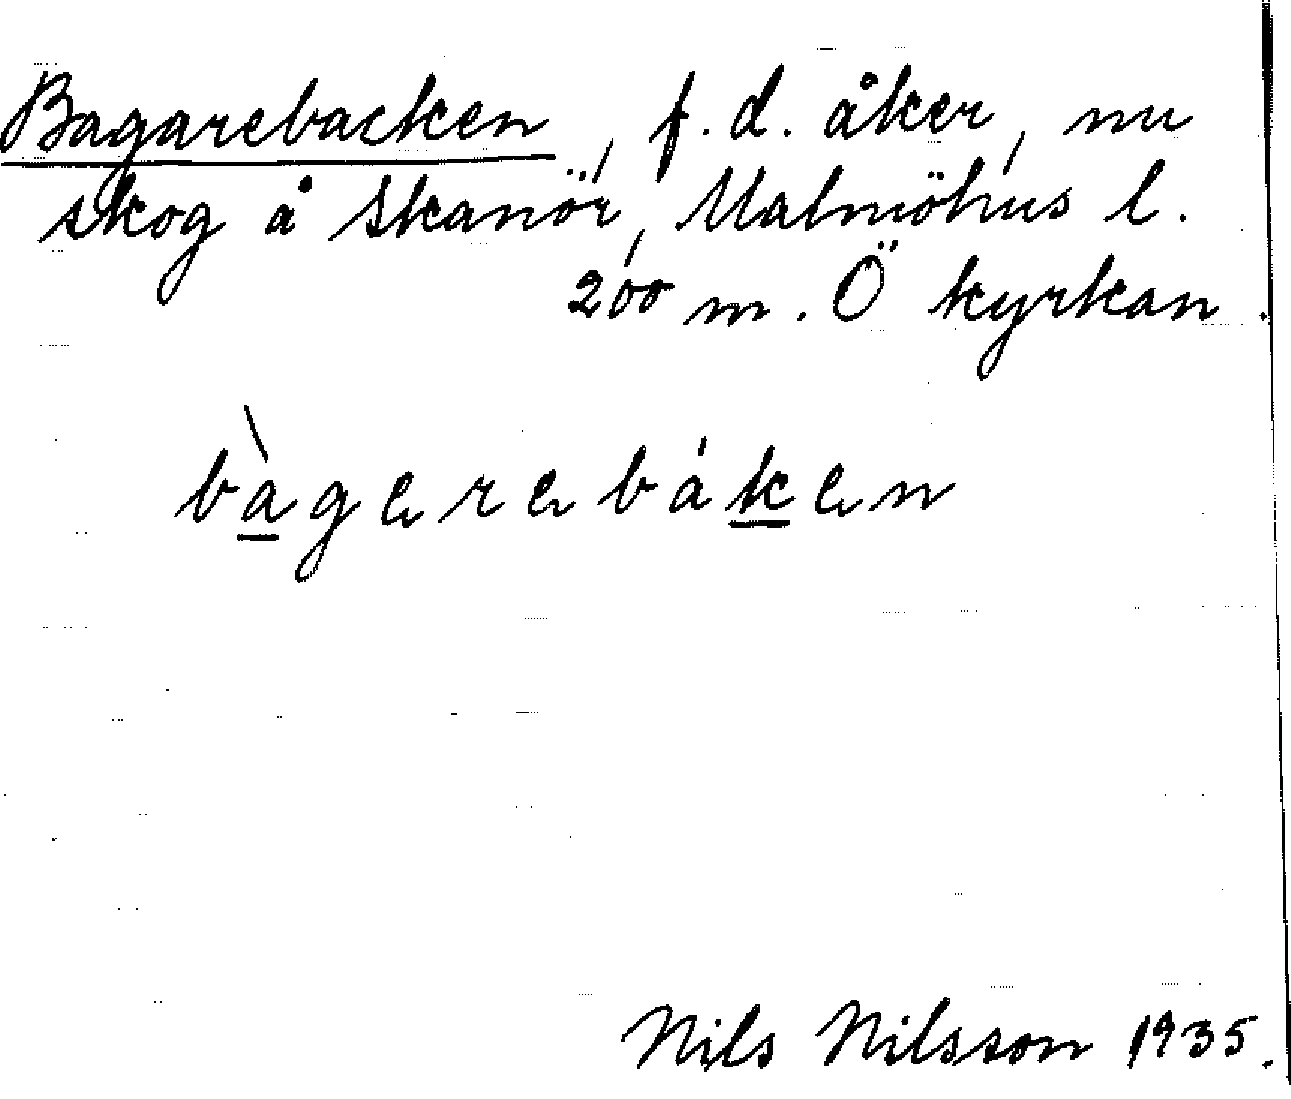 Bagarebacken, f.d. åker, nu
skog å Skanör, Malmöhus l.
200 m. Ö kyrkan.
bàgerebáken
Nils Nilsson 1935.